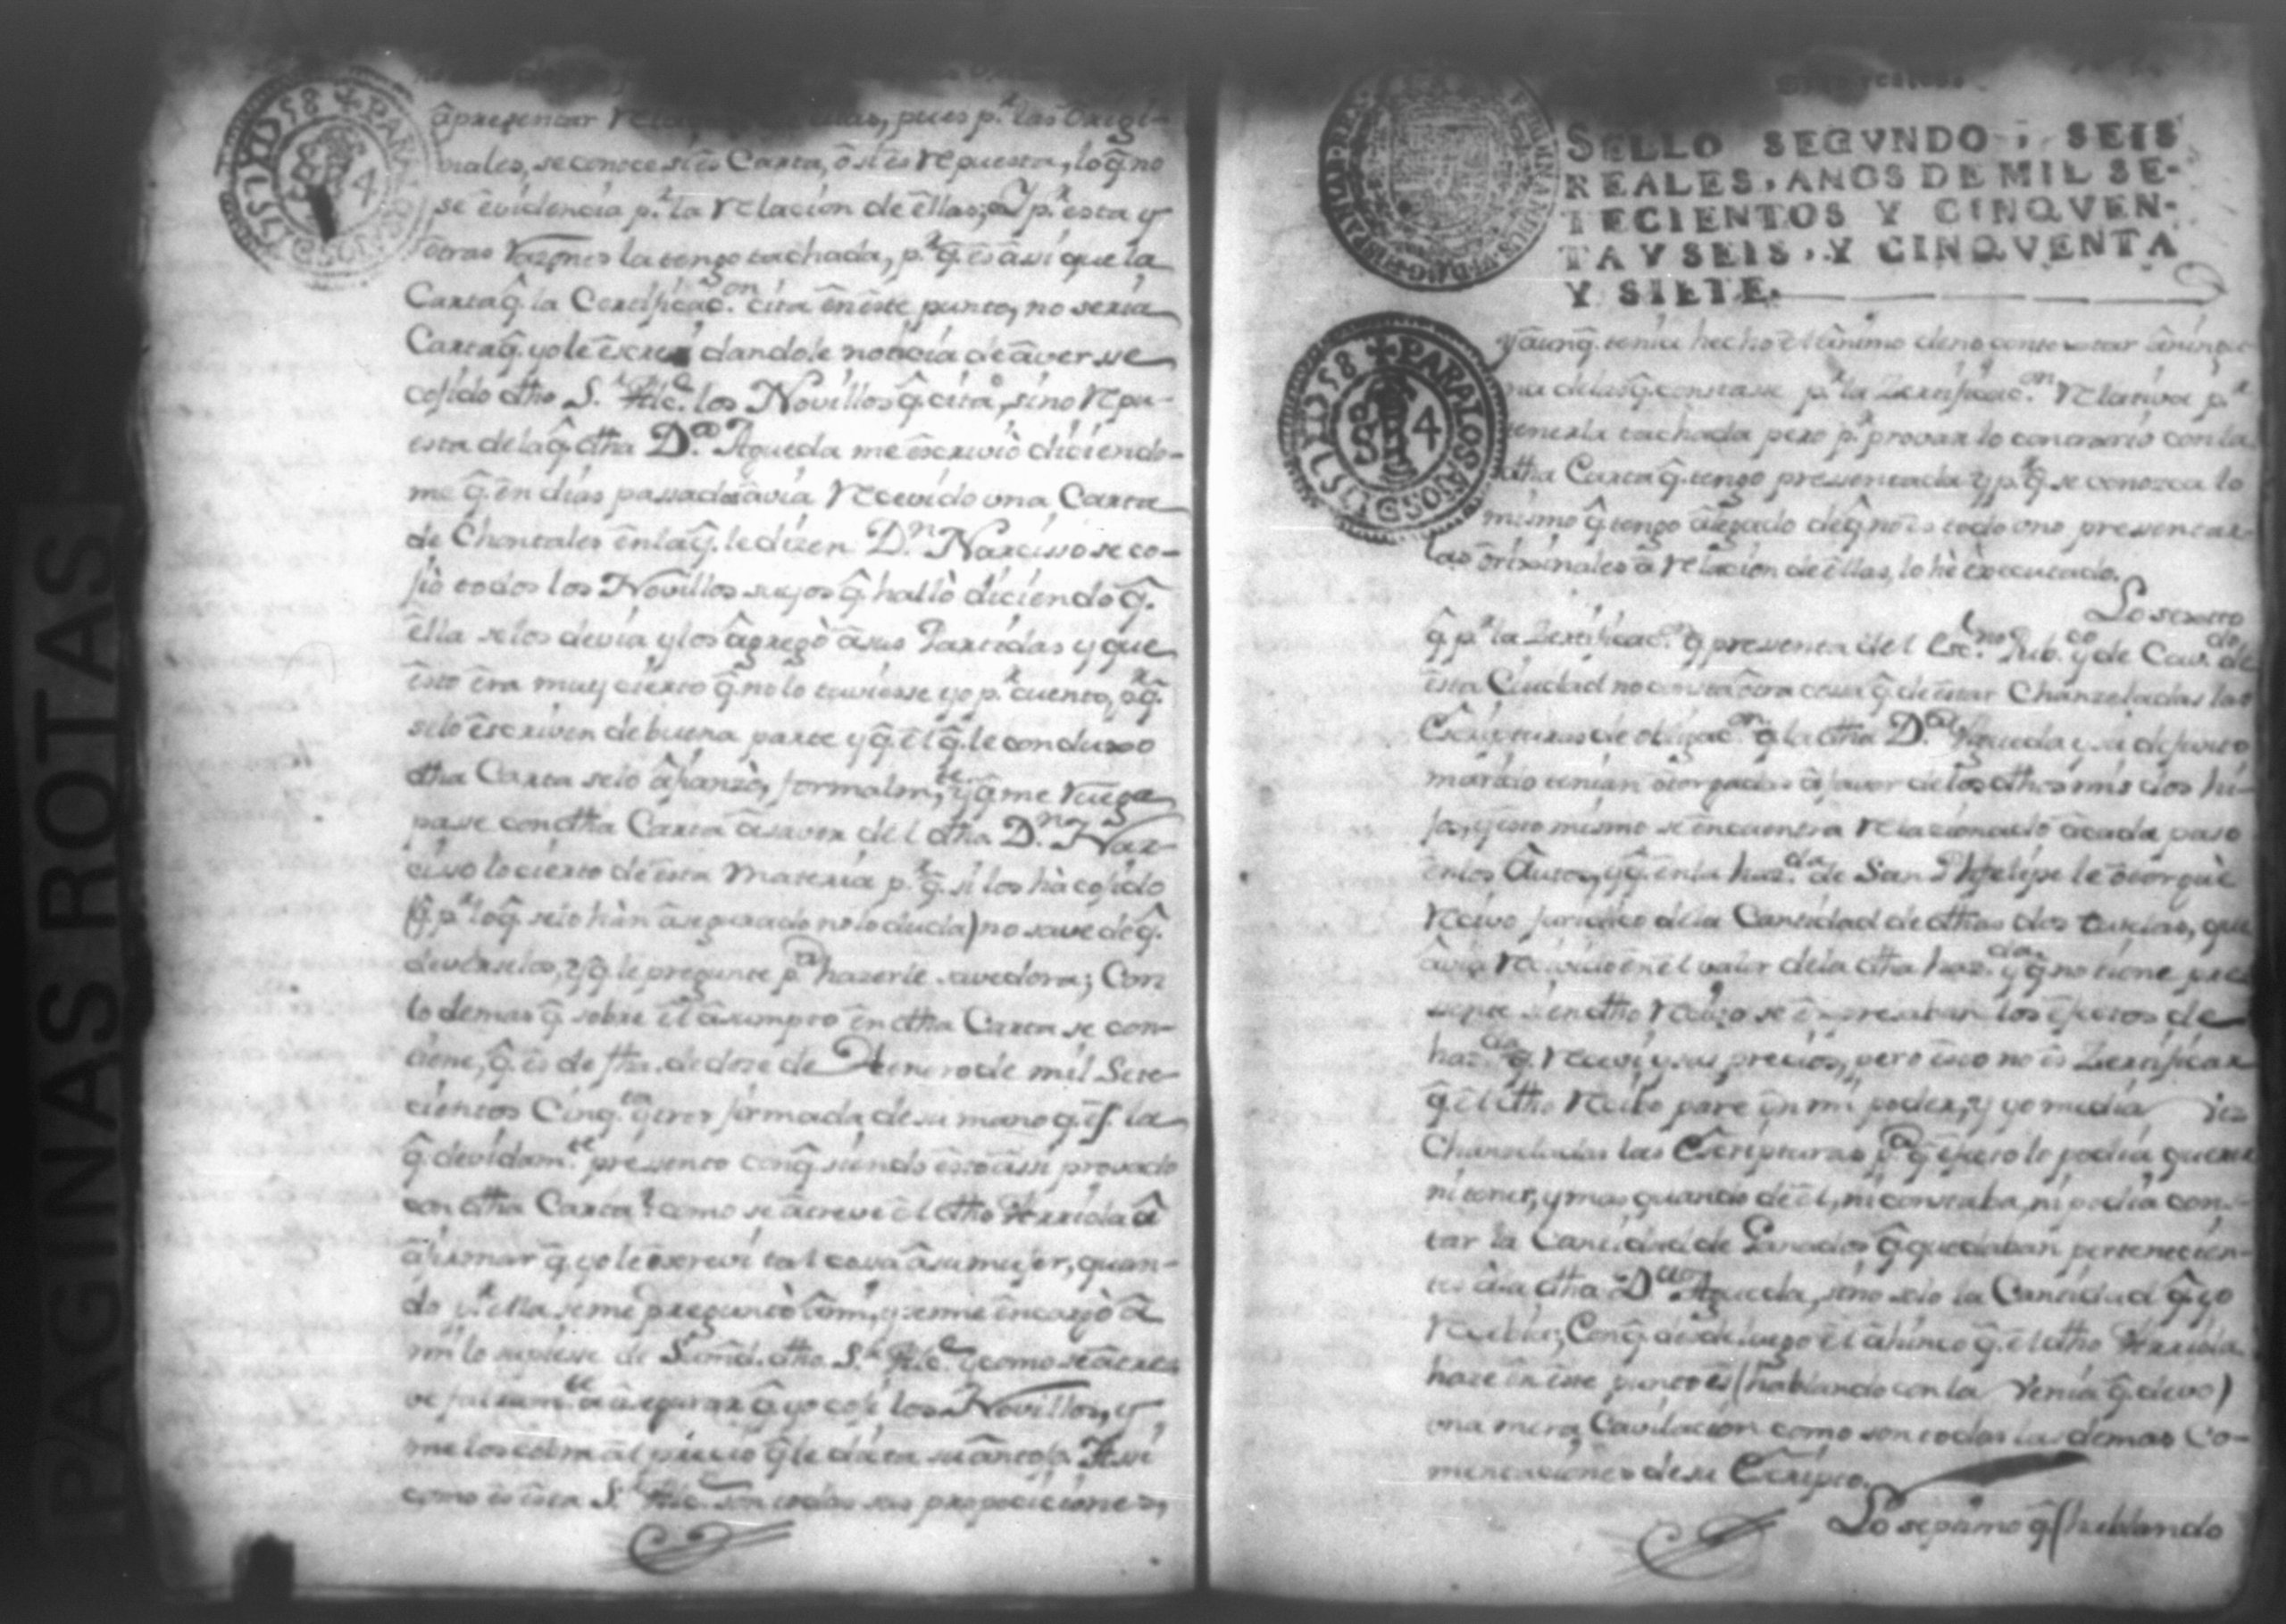 PAGINAS ROTAS
âpresentar pues p.r las Origi-
nales, se conoce si ês Carta, ô si ês repuesta, lo q̂ no
se êvidencia p.r la relacion de êllas, y p.r esta y
ôtras razones la tengo tachada, p.r q̂ ês âsi que la
Carta q̂ la Certificac.on cita ên êste punto, no sería
Carta q̂ yo le êscreví dandole notícia de âverse
cojído dho S.r Alc.e los Novíllos q̂ cita, sino repu-
esta de la q̂ dha D.ña Agueda me êscrivió diciendo-
me q̂ ên dias pasados âvia recevído una Carta
de Chontales ên la q̂ le dizen D.n Narcisso se co-
jiò todos los Novíllos suyos q̂ hallò diciendo q̂
êlla se los devía y los âgregò â sus Partidas y que
êsto êra muy cierto q̂ no lo tuviesse yo p.r cuento, p.r q̂
se lo êscriven de buena parte y q̂ êl q̂ le conduxo
dha Carta se lo âfianzò, formalm.te y q̂ me ruega
pase con dha Carta â saver del dho D.n Nar-
ciso lo cierto de êsta Matería p.r q̂ si los hà cojído
(q̂ p.r lo q̂ se lo hàn âsegurado no lo duda) no save de q̂
deverselos, y q̂ le pregunte p.a hazerle savedora; Con
lo demas q̂ sobre êl âsumpto ên dha Carta se con-
tiene, q̂ ês de fha. de doze de Henero de mil Sete-
cientos Cinq.ta y tres firmada de su mano q̂ ês la
q̂ devidam.te presento con q̂ siendo êsto âsi provado
con dha Carta? como se âtreve êl dho Arriola â
âfirmar q̂ yo le êscreví tal cosa â su mujer, quan-
do p.r ella se me preguntò â mi, y se me êncargò â
mi lo supiesse de Sumd. dho S.r Alc.e y como se âtre-
ve falsam.te â âsegurar q̂ yo cojí los Novíllos, y
me los cobra al precio q̂ le dicta su ântojo. Asi
como ês êsta S.r Alc.e son todas sus proposiciones,
SELLO SEGVNDO, SEIS
REALES, AÑOS DE MIL SE-
TECIENTOS Y CINQVEN-
TA Y SEIS, Y CINQVENTA
Y SIETE.
PARA LOS AÑOS DE
S 4
y âunq̂ tenía hecho êl ânimo de no contestar â ningu-
na de las q̂ constase p.r la Zertificac.on relativa p.r
tenerla tachada pero p.r provar lo contrario con la
dha Carta q̂ tengo presentada y p.r q̂ se conozca lo
mísmo q̂ tengo âlegado de q̂ no ês todo uno presentar
las ôriginales â relacíon de êllas, lo hè êxecutado.
Lo sexto
q̂ p.r la Zertificac.on q̂ presenta del Esc.no Pub.co y de Cav.do de
êsta Ciudad no consta ôtra cosa q̂ de êstar Chanzeladas las
Escripturas de obligac.on q̂ la dha D.ña Agueda y su defunto
marido tenían ôtorgadas â favor de los dhos mis dos hi-
jos, y êsto mísmo se êncuentra relacionado â cada paso
ên los Autos, y q̂ ên la haz.da de San Phelipe le ôtorguè
recivo juridico de la Cantidad de dhas dos tutelas, que
âvia recivido ên êl valor de la dha haz.da y q̂ no tiene pre-
sente si ên dho recivo se êxpresaban los êfectos de
haz.da q̂ recivi y sus precios, pero êsto no ês Zertificar
q̂ êl dho recibo pare ên mi poder, y yo
Chanceladas las Escripturas p.a q̂ êfecto lo podia querer
ni tener, y mas quando de êl, ni constaba, ni podia cons-
tar la Cantidad de Ganados q̂ quedaban pertenecien-
tes â la dha D.ña Agueda, sino solo la Cantidad q̂ yo
recibía; Con q̂ desde luego êl âhinco q̂ êl dho Arriola
haze ên êste punto ês (hablando con la Venía q̂ devo)
una mera Cavilacíon como son todas las demas Co-
mentaciones de su Escripto.
Lo septimo q̂ (hablando